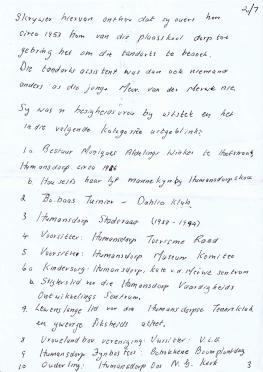 2/7
Skrywer hiervan onthou dat sy ouers hom
circa 1953 hom van die plaasskool dorp toe
gebring het om die tandarts te besoek.
Die tandarts assistent was dan ook niemand
anders as die jong Mev. van der Merwe nie.
Sy was 'n besigheidsvrou by uitstek en het
in die volgende kategorië uitgeblink:
1a Bestuur Moniques Afdelings Winkel te Hoofstraat
Humansdorp. circa
b. Hou selfs haar lyf mannekyn by Humansdorp skou
2 Bo-baas Tuinier - Dahlia klub
3 Humansdorp Stadsraad (1984 - 1994)
4 Voorsitter: Humansdorp Toerisme Raad
5 Voorsitter: Humansdorp Museum Komitee
6a Kindersorg: Humansdorp, sentrum
b Stigterslid van die Humansdorp Vaardigheids
Ontwikkelings Sentrum.
7. Lewenslange lid van die Humansdorpse Tennisklub
en ywerige fiksheids atleet.
8 Vroue landbou vereniging: Voorsitter: V.L.V.
9 Humansdorp Instituut: Betrokkene Boomplantdag
10 Ouderling: Humansdorp Oos N.G. Kerk
3